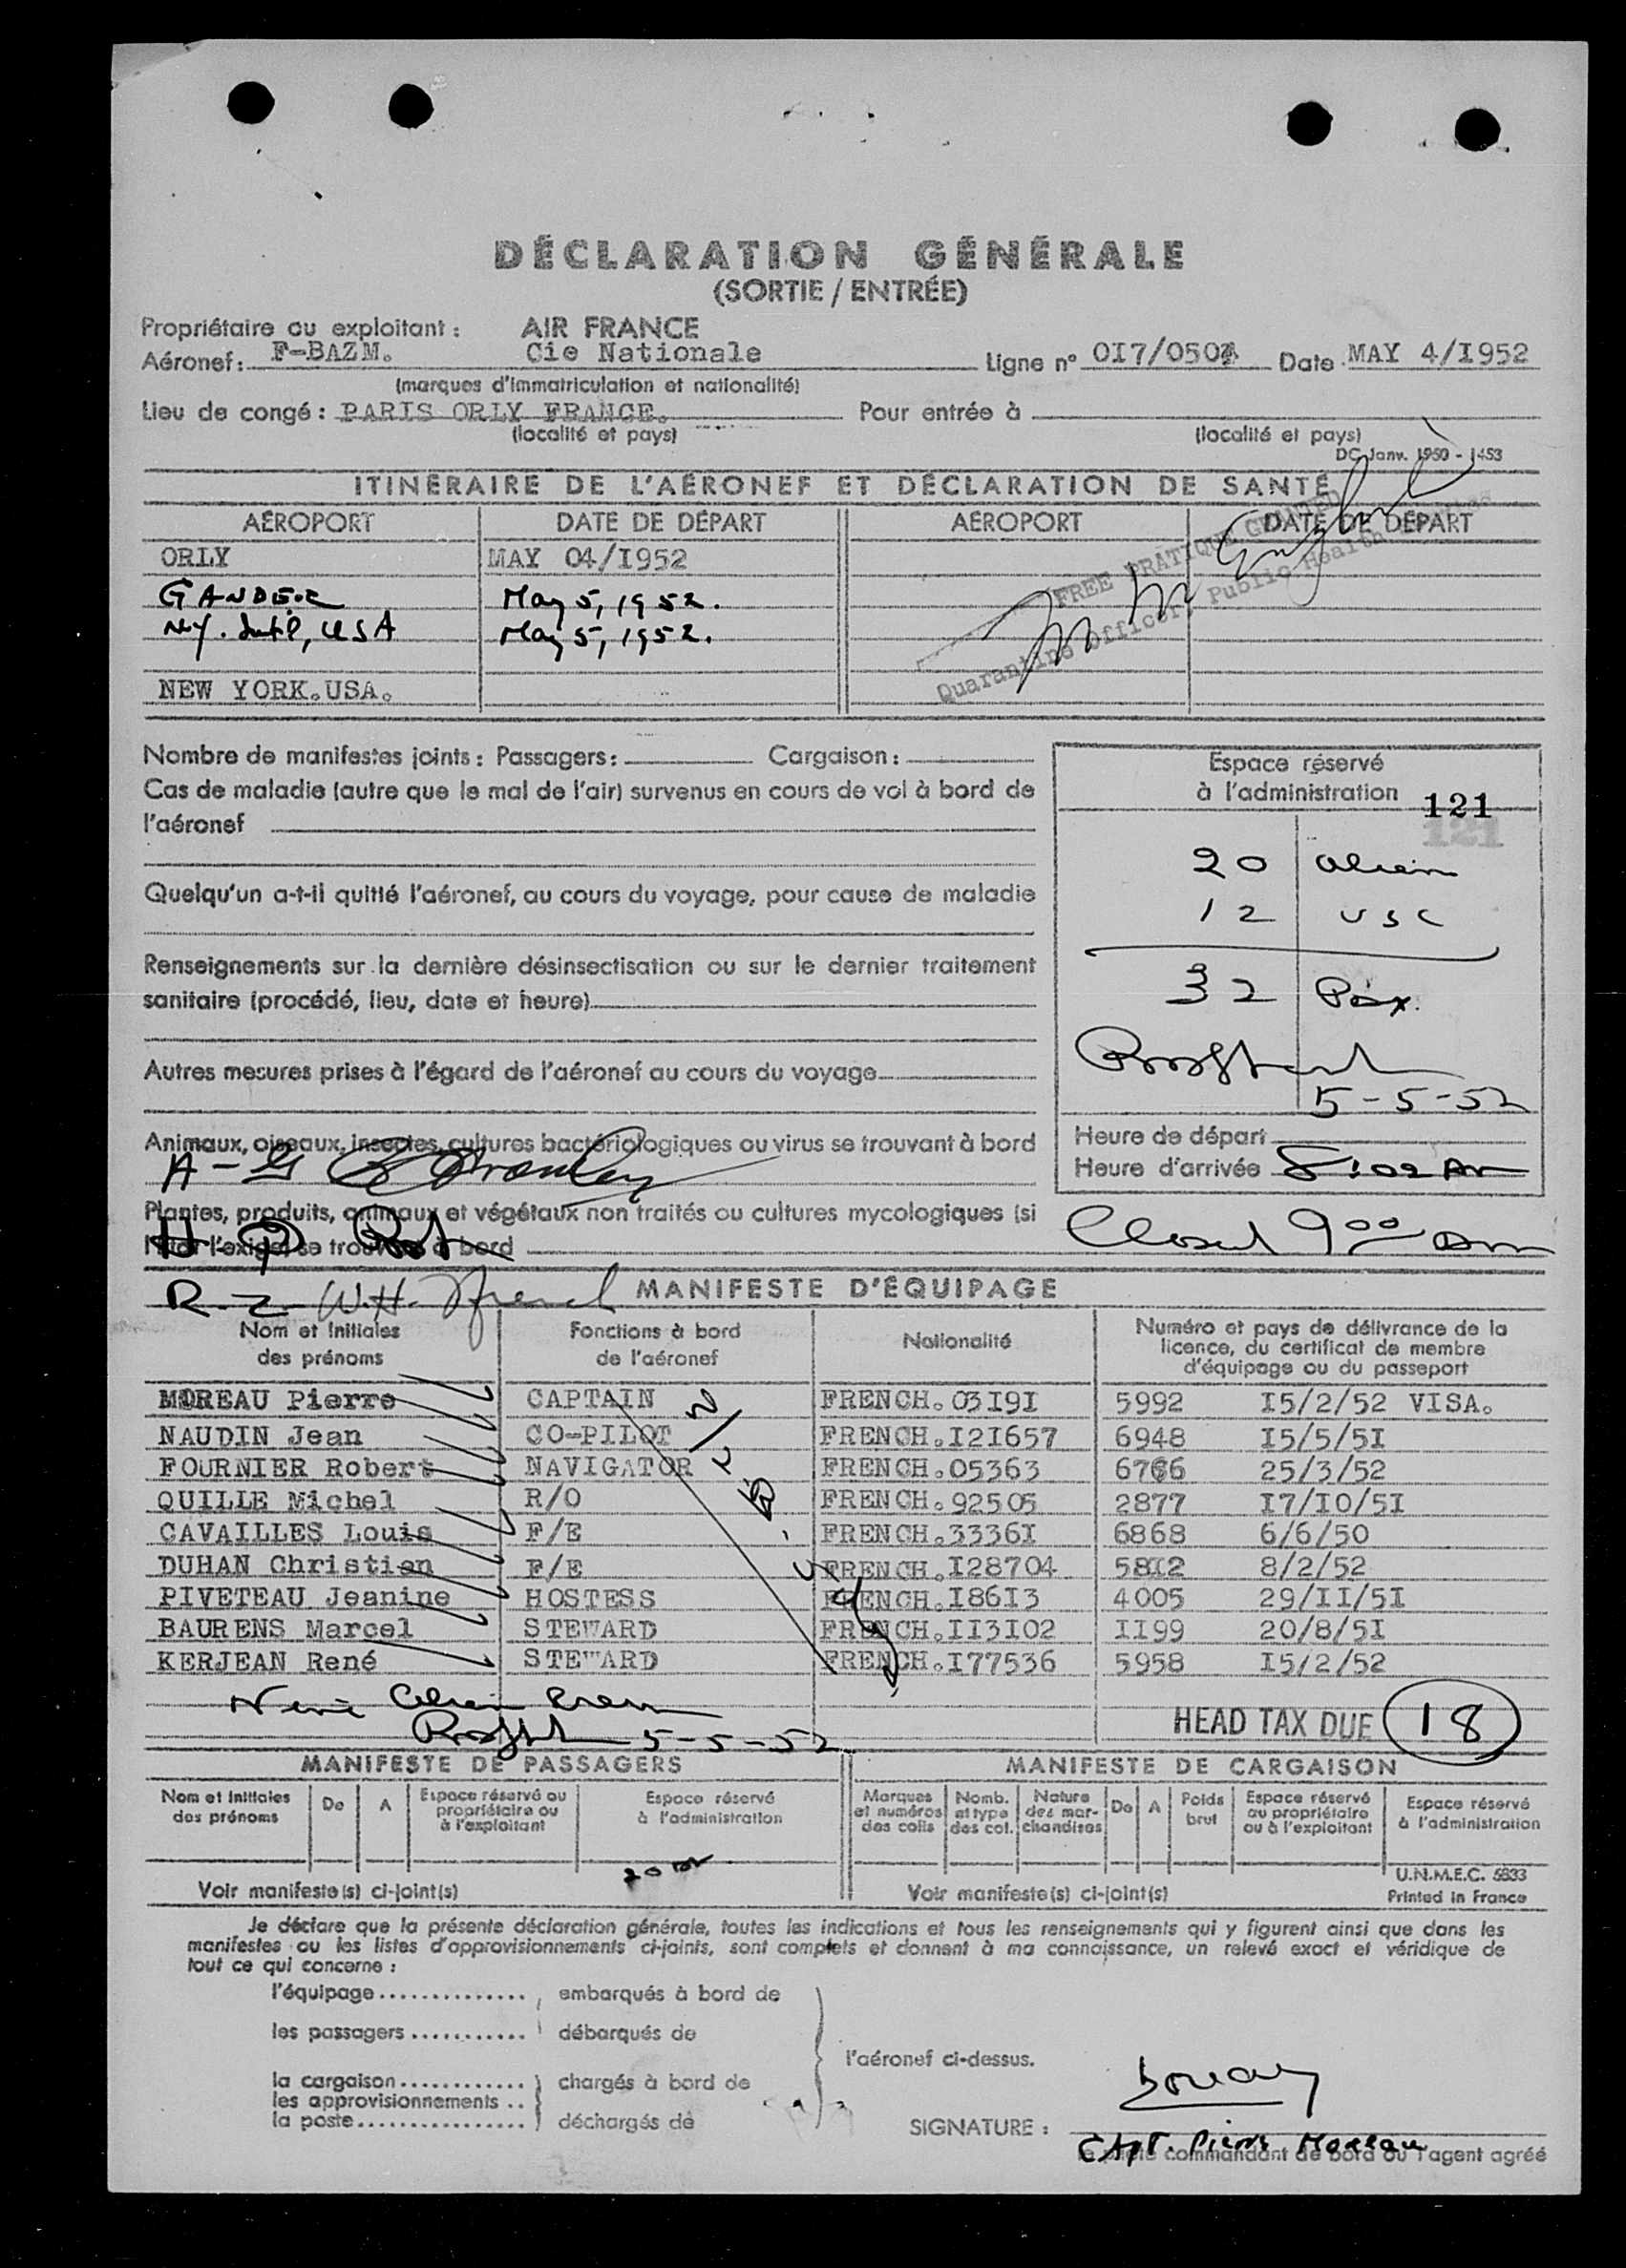 DÉCLARATION GÉNÉRALE
(SORTIE / ENTRÉE)
Propriétaire ou exploitant : AIR FRANCE
Aéronef: F-BAZM. Cie Nationale Ligne n° OI7/050 Date MAY 4/I952
(marques d'immatriculation et nationalité)
Lieu de congé : PARIS ORLY FRANCE. Pour entrée à
(localité et pays) (localité et pays)
DC Janv. 1950 - 1453
ITINÉRAIRE DE L'AÉRONEF ET DÉCLARATION DE SANTÉ
AÉROPORT DATE DE DÉPART AÉROPORT DATE DE DÉPART
ORLY MAY 04/I952
GANDER May 5, 1952.
N.Y. Int'l, USA May 5, 1952.
NEW YORK.USA.
FREE PRATIQUE GRANTED
Quarantine Officer, Public Health Service
Nombre de manifestes joints : Passagers : Cargaison :
Cas de maladie (autre que le mal de l'air) survenus en cours de vol à bord de
l'aéronef
Quelqu'un a-t-il quitté l'aéronef, au cours du voyage, pour cause de maladie
Renseignements sur la dernière désinsectisation ou sur le dernier traitement
sanitaire (procédé, lieu, date et heure)
Autres mesures prises à l'égard de l'aéronef au cours du voyage
Animaux, oiseaux, insectes, cultures bactériologiques ou virus se trouvant à bord
A -
Plantes, produits, animaux et végétaux non traités ou cultures mycologiques (si
l'État l'exige) se trouvant à bord
Espace réservé
à l'administration
121
20 alien
12 USC
32 Pax.
5-5-52
Heure de départ
Heure d'arrivée 8:02 AM
Closed 9:00 am
MANIFESTE D'ÉQUIPAGE
R-2 W.H. French
Nom et Initiales des prénoms Fonctions à bord de l'aéronef Nationalité Numéro et pays de délivrance de la licence, du certificat de membre d'équipage ou du passeport
MOREAU Pierre CAPTAIN FRENCH.03I9I 5992 I5/2/52 VISA.
NAUDIN Jean CO-PILOT FRENCH.I2I657 6948 I5/5/5I
FOURNIER Robert NAVIGATOR FRENCH.05363 6766 25/3/52
QUILLE Michel R/O FRENCH.92505 2877 I7/I0/5I
CAVAILLES Louis F/E FRENCH.3336I 6868 6/6/50
DUHAN Christian F/E FRENCH.I28704 58I2 8/2/52
PIVETEAU Jeanine HOSTESS FRENCH.I86I3 4005 29/II/5I
BAURENS Marcel STEWARD FRENCH.II3I02 II99 20/8/5I
KERJEAN René STEWARD FRENCH.I77536 5958 I5/2/52
Nine Alien Crew
5-5-52
HEAD TAX DUE 18
MANIFESTE DE PASSAGERS MANIFESTE DE CARGAISON
Nom et Initiales des prénoms De A Espace réservé au propriétaire ou à l'exploitant Espace réservé à l'administration Marques et numéros des colis Nomb. et type des col. Nature des marchandises De A Poids brut Espace réservé au propriétaire ou à l'exploitant Espace réservé à l'administration
U.N.M.E.C. 5833
Voir manifeste(s) ci-joint(s) Voir manifeste(s) ci-joint(s) Printed in France
Je déclare que la présente déclaration générale, toutes les indications et tous les renseignements qui y figurent ainsi que dans les
manifestes ou les listes d'approvisionnements ci-joints, sont complets et donnent à ma connaissance, un relevé exact et véridique de
tout ce qui concerne :
l'équipage............... embarqués à bord de
les passagers........... débarqués de
l'aéronef ci-dessus.
la cargaison............. chargés à bord de
les approvisionnements ..
la poste................. déchargés de
SIGNATURE :
CAPT. Pierre Moreau
le pilote commandant de bord ou l'agent agréé